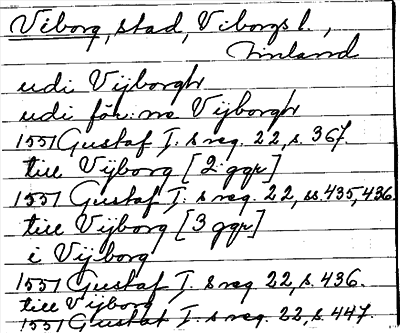 Viborg, stad, Viborgs l.,
Finland
udi Vijborgh
udi för:ne Vijborgh
1551 Gustaf I:s reg. 22, s. 367.
till Vijborg [2 ggr]
1551 Gustaf I:s reg. 22, ss. 435, 436.
till Vijborg [3 ggr]
i Vijborg
1551 Gustaf I:s reg. 22, s. 436.
till Vijborg
1551 Gustaf I:s reg. 22, s. 447.